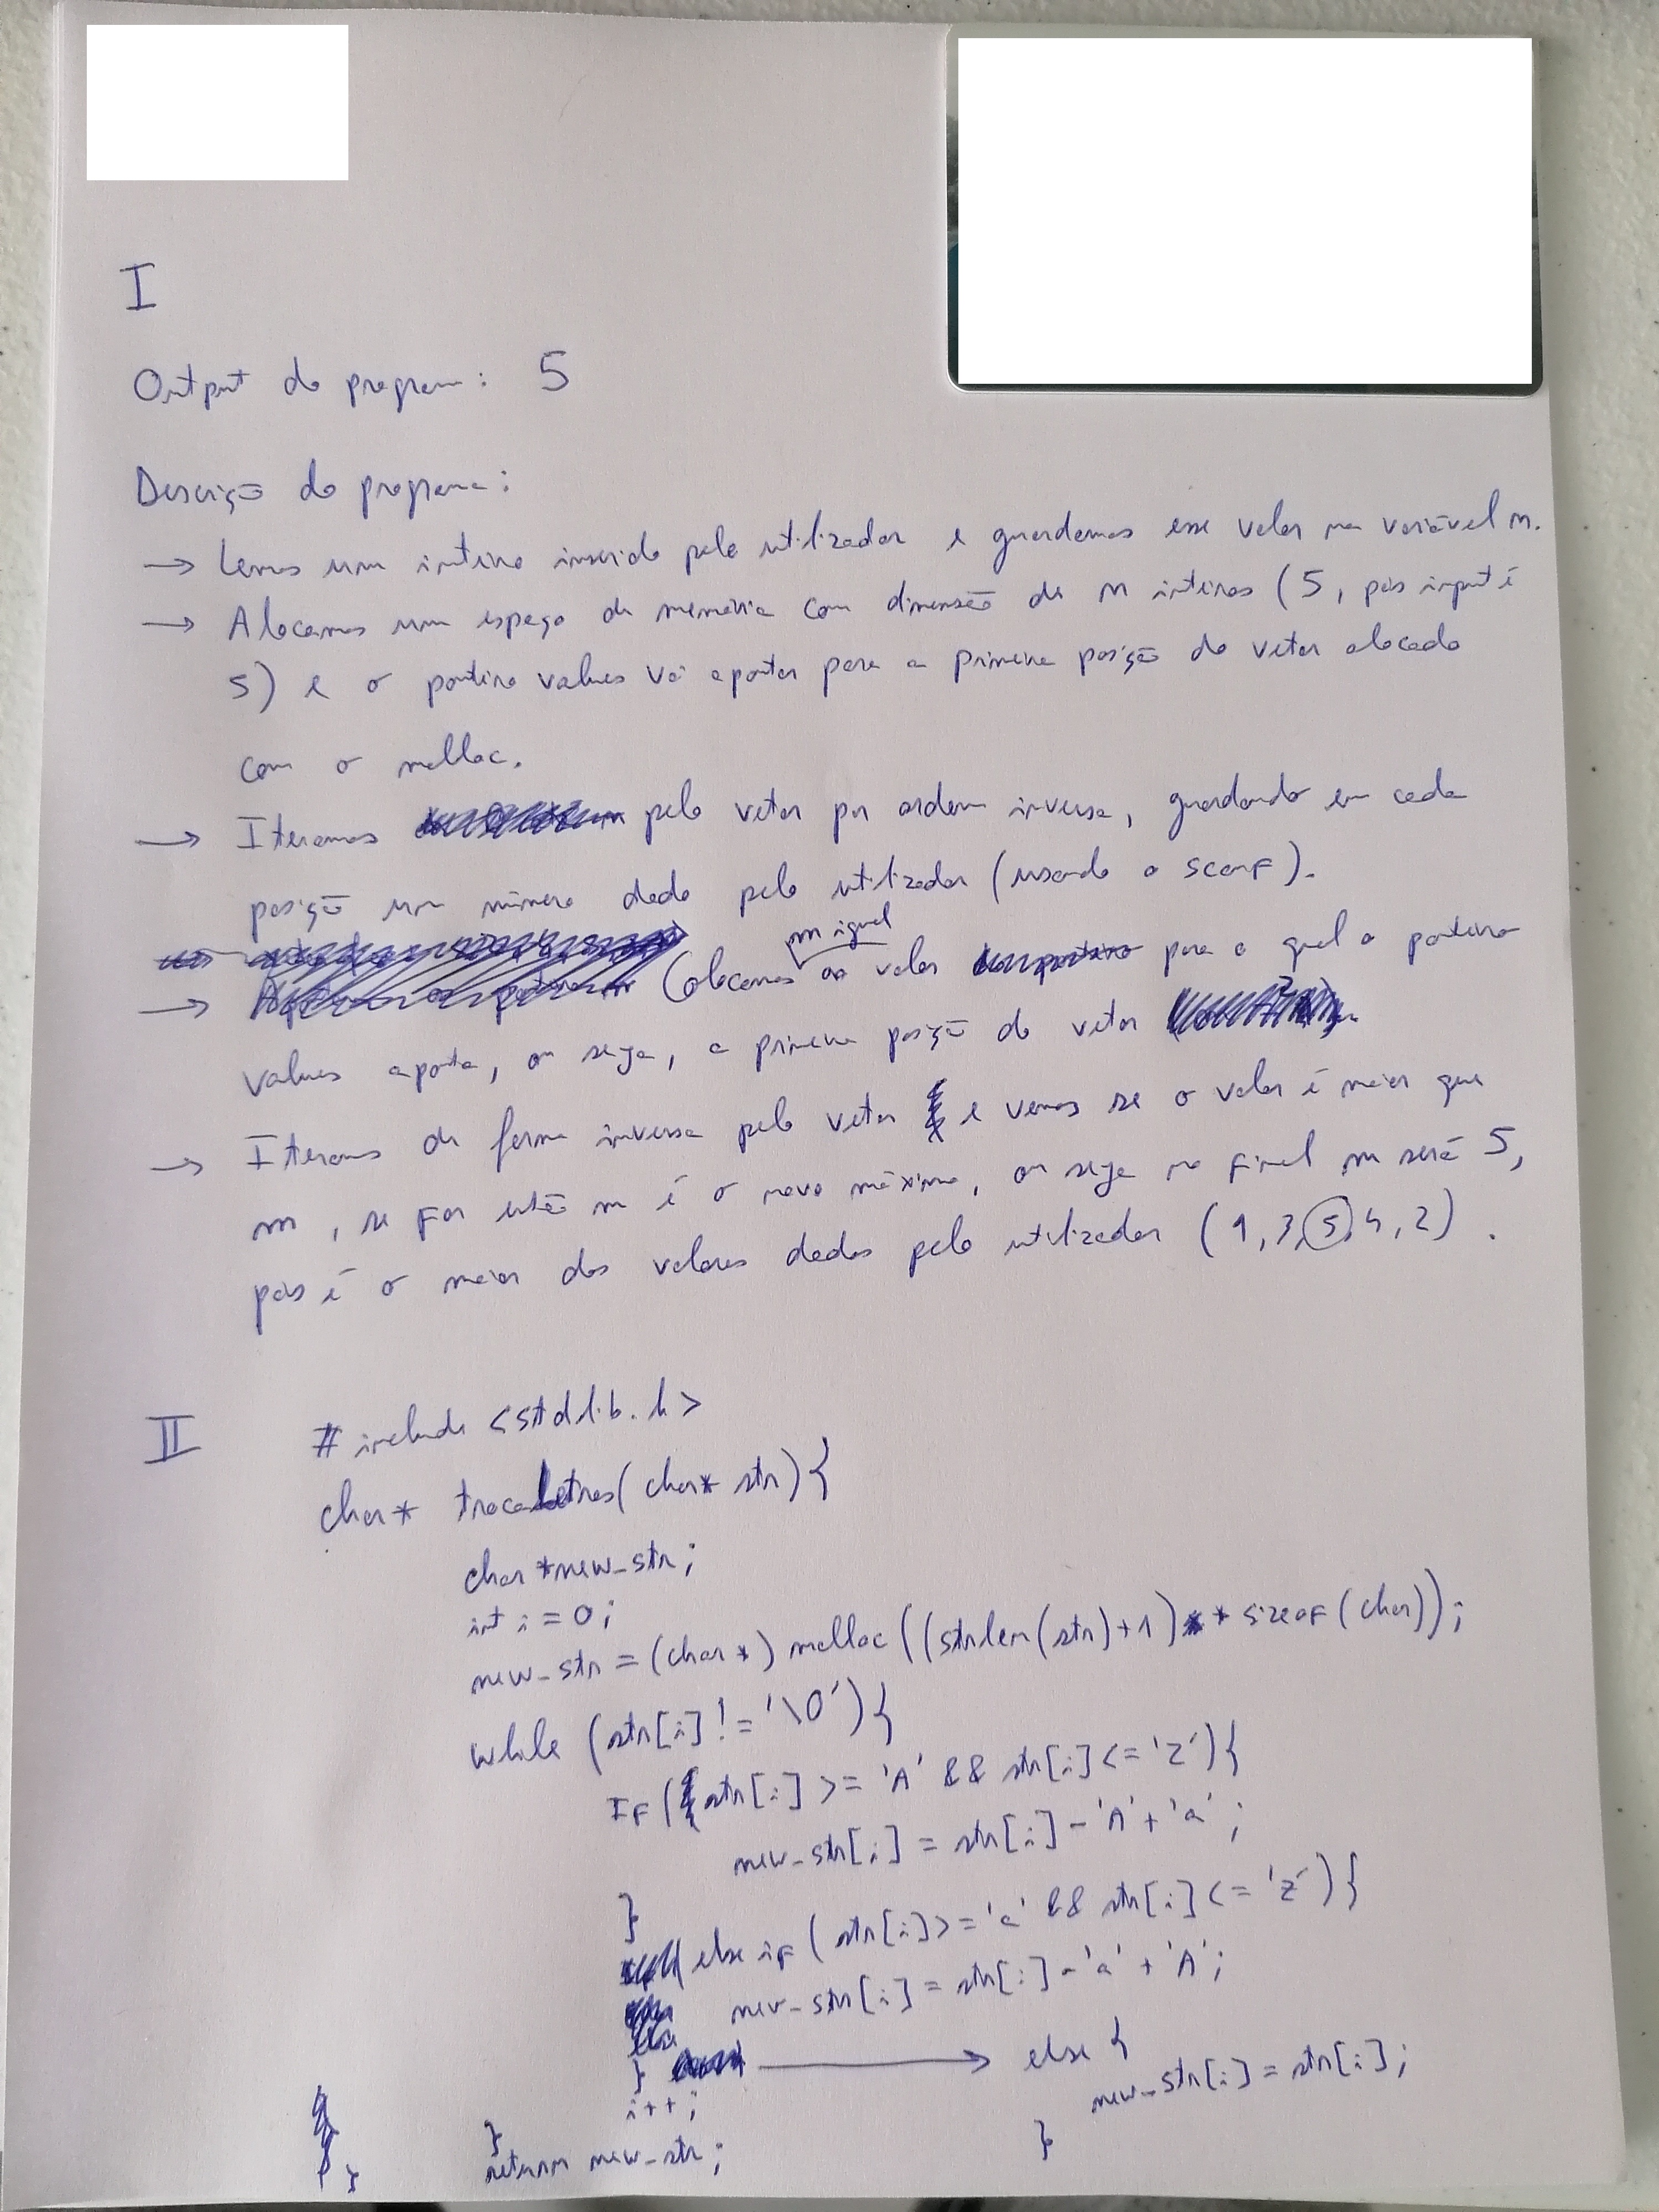 I
Output do programa: 5
Descrição do programa:
→ Lemos um inteiro inserido pelo utilizador e guardamos esse valor na variável n.
→ Alocamos um espaço de memória com dimensão de n inteiros (5, pois input é
5) e o ponteiro values vai apontar para a primeira posição do vetor alocado
com o malloc.
→ Iteramos pelo vetor por ordem inversa, guardando em cada
posição um número dado pelo utilizador (usando o scanf).
→ Colocamos m igual ao valor para o qual o ponteiro
values aponta, ou seja, a primeira posição do vetor
→ Iteramos de forma inversa pelo vetor e vemos se o valor é maior que
m, se for então m é o novo máximo, ou seja no final m será 5,
pois é o maior dos valores dados pelo utilizador (1,3,5,4,2).
II
#include <stdlib.h>
char* trocaLetras(char* str){
char *new_str;
int i = 0;
new_str = (char*) malloc((strlen(str)+1) * sizeof(char));
while (str[i] != '\0'){
if (str[i] >= 'A' && str[i] <= 'Z'){
new_str[i] = str[i] - 'A' + 'a';
}
else if (str[i] >= 'a' && str[i] <= 'z'){
new_str[i] = str[i] - 'a' + 'A';
} → else {
new_str[i] = str[i];
}
i++;
}
return new_str;
}